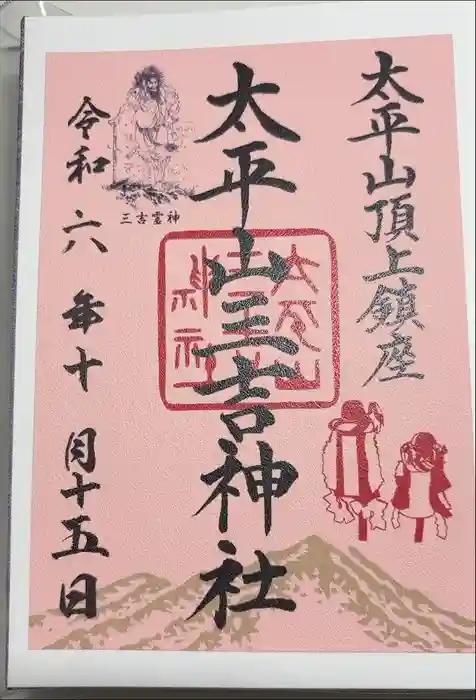 太平山頂上鎮座
太平山三吉神社
太平山三吉神社
三吉霊神
令和六年十月十五日